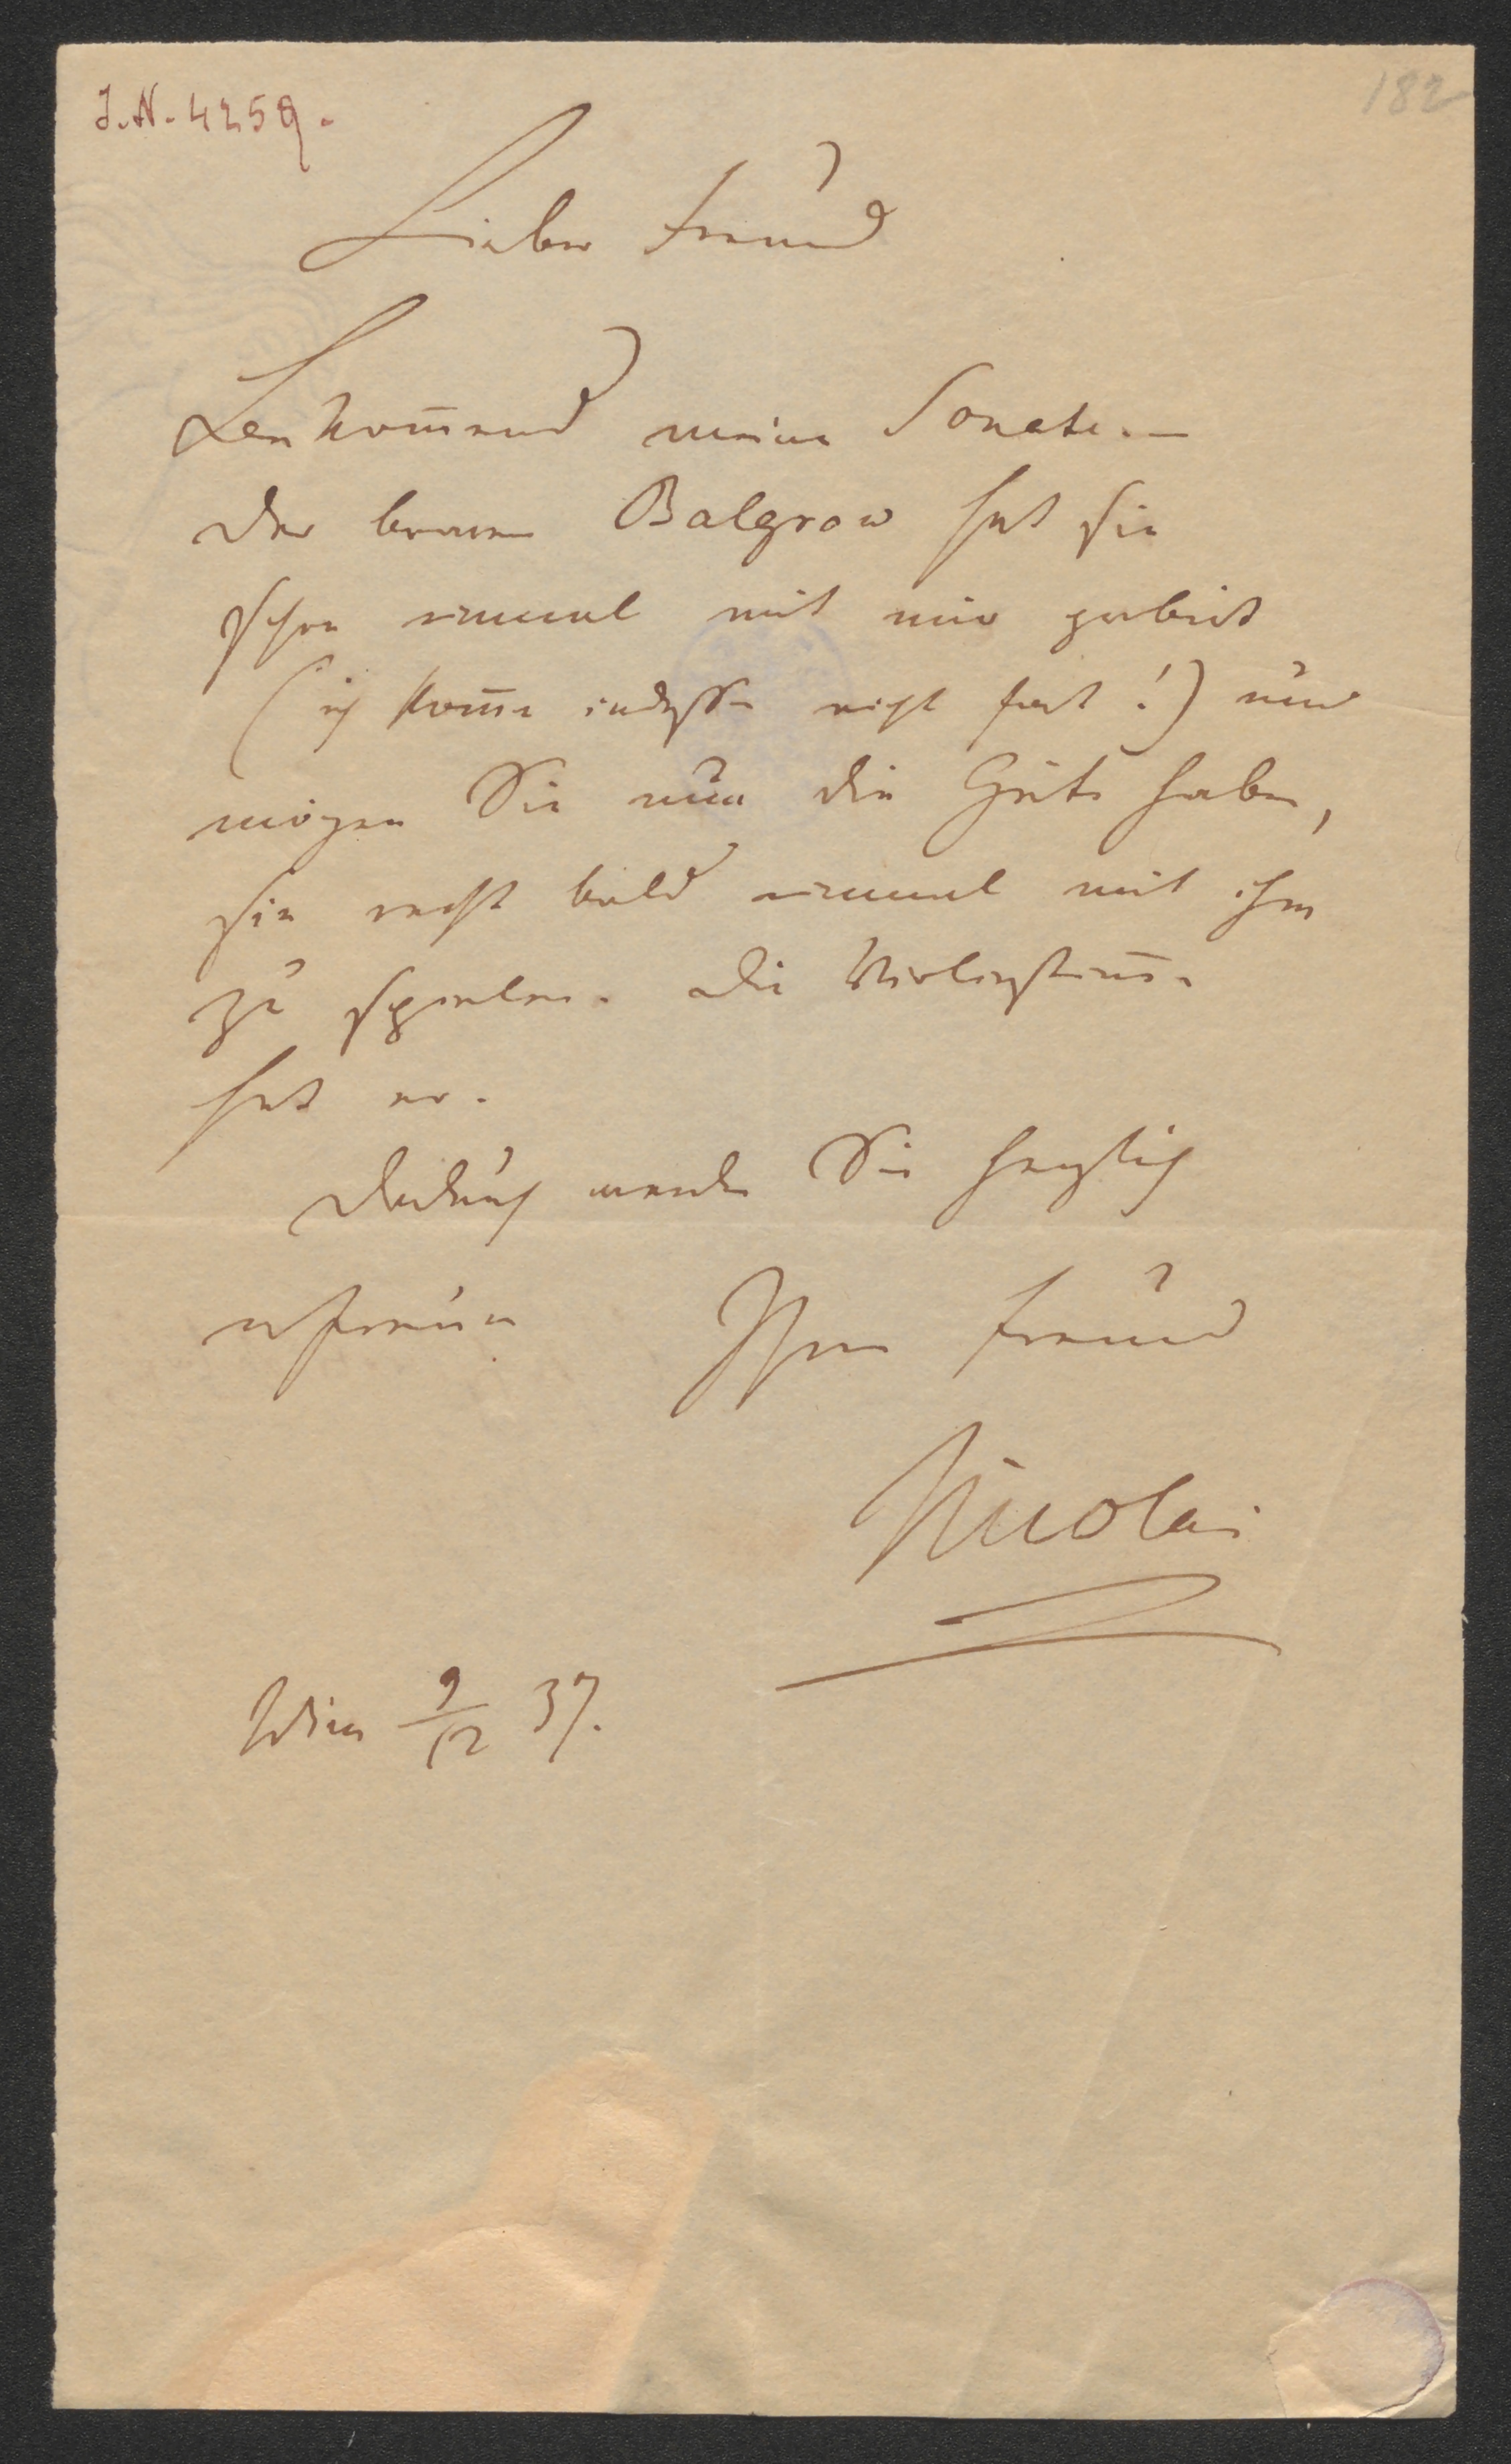 J.N. 4259.
182
Lieber Freund
kom̅end meine Sonate. —
der brave Balgrow hat sie
schon einmal mit mir geübt
(ich kom̅e indessen nicht fort!) und
mögen Sie nun die Güte haben,
sie recht bald einmal mit ihm
zu spielen. Die Violinstim̅e
hat er.
Dadurch werden Sie herzlich
erfreuen Ihren Freund
Nicolai
Wien 9/12 37.